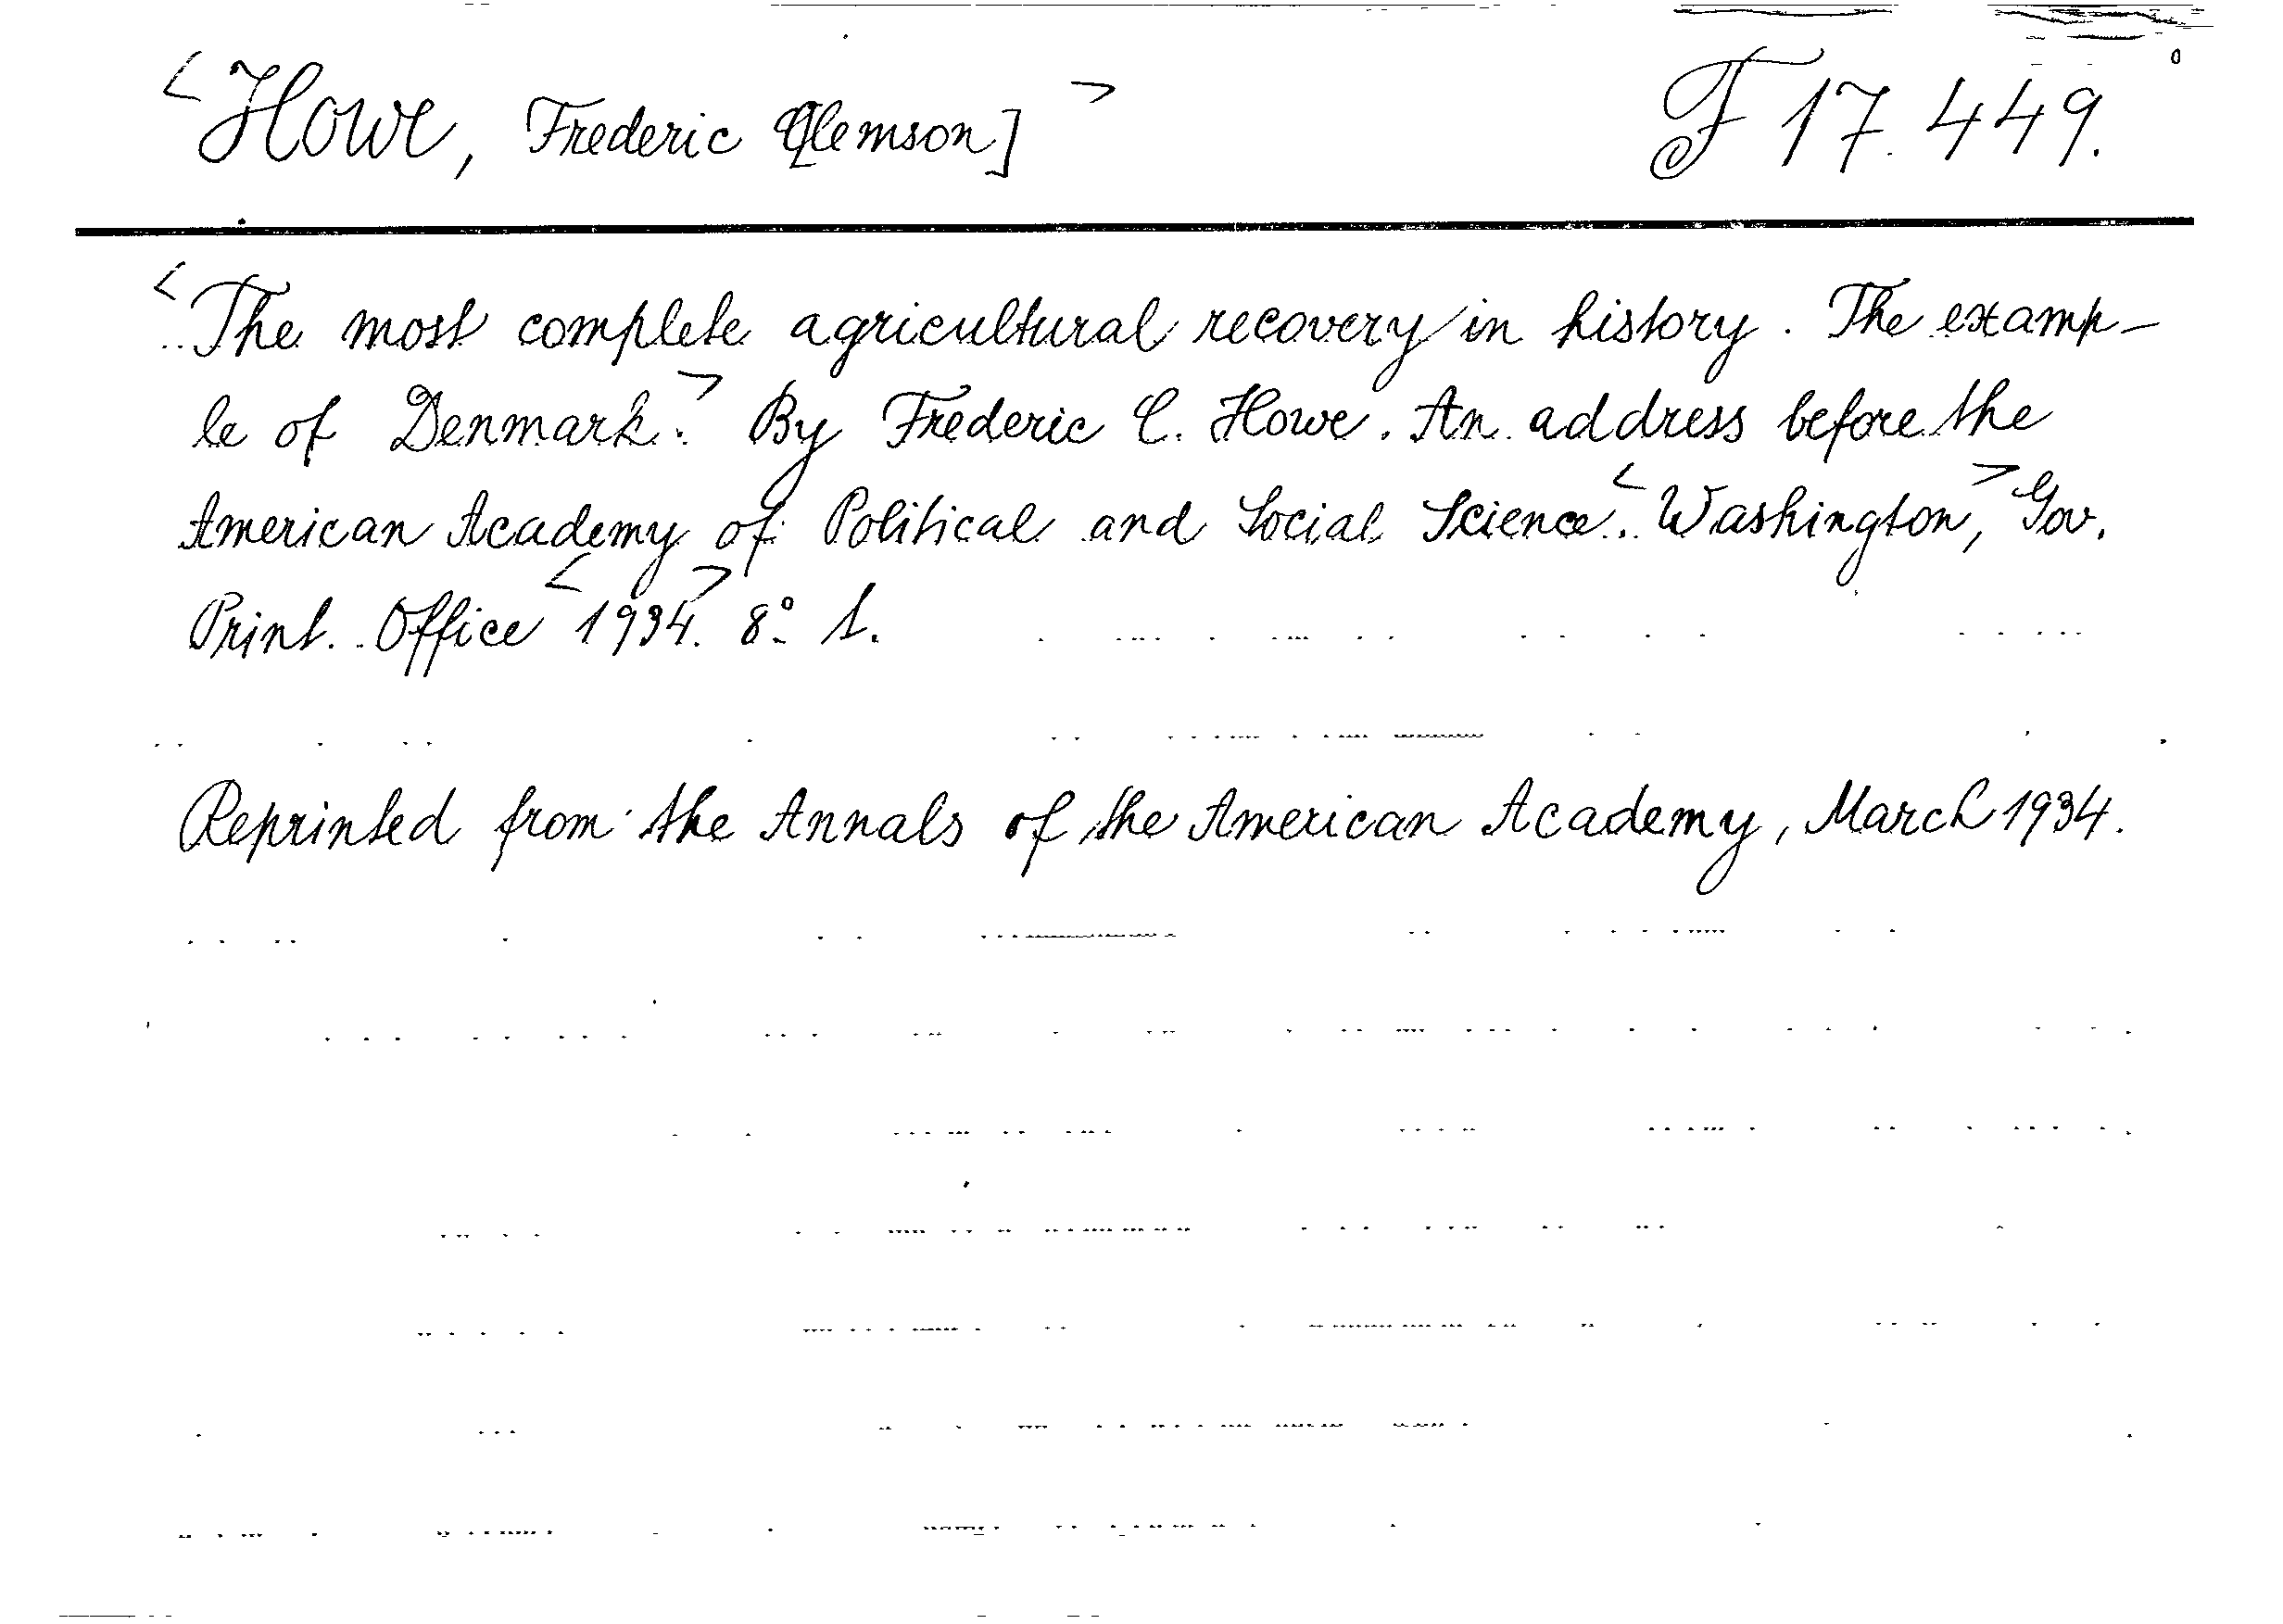 <Howe, Frederic C[lemson]> F 17.449.
<The most complete agricultural recovery in history. The examp-
le of Denmark.> By Frederic C. Howe. An address before the
American Academy of Political and Social Science. <Washington,> Gov.
Print. Office <1934.> 8° 1.
Reprinted from the Annals of the American Academy, March 1934.